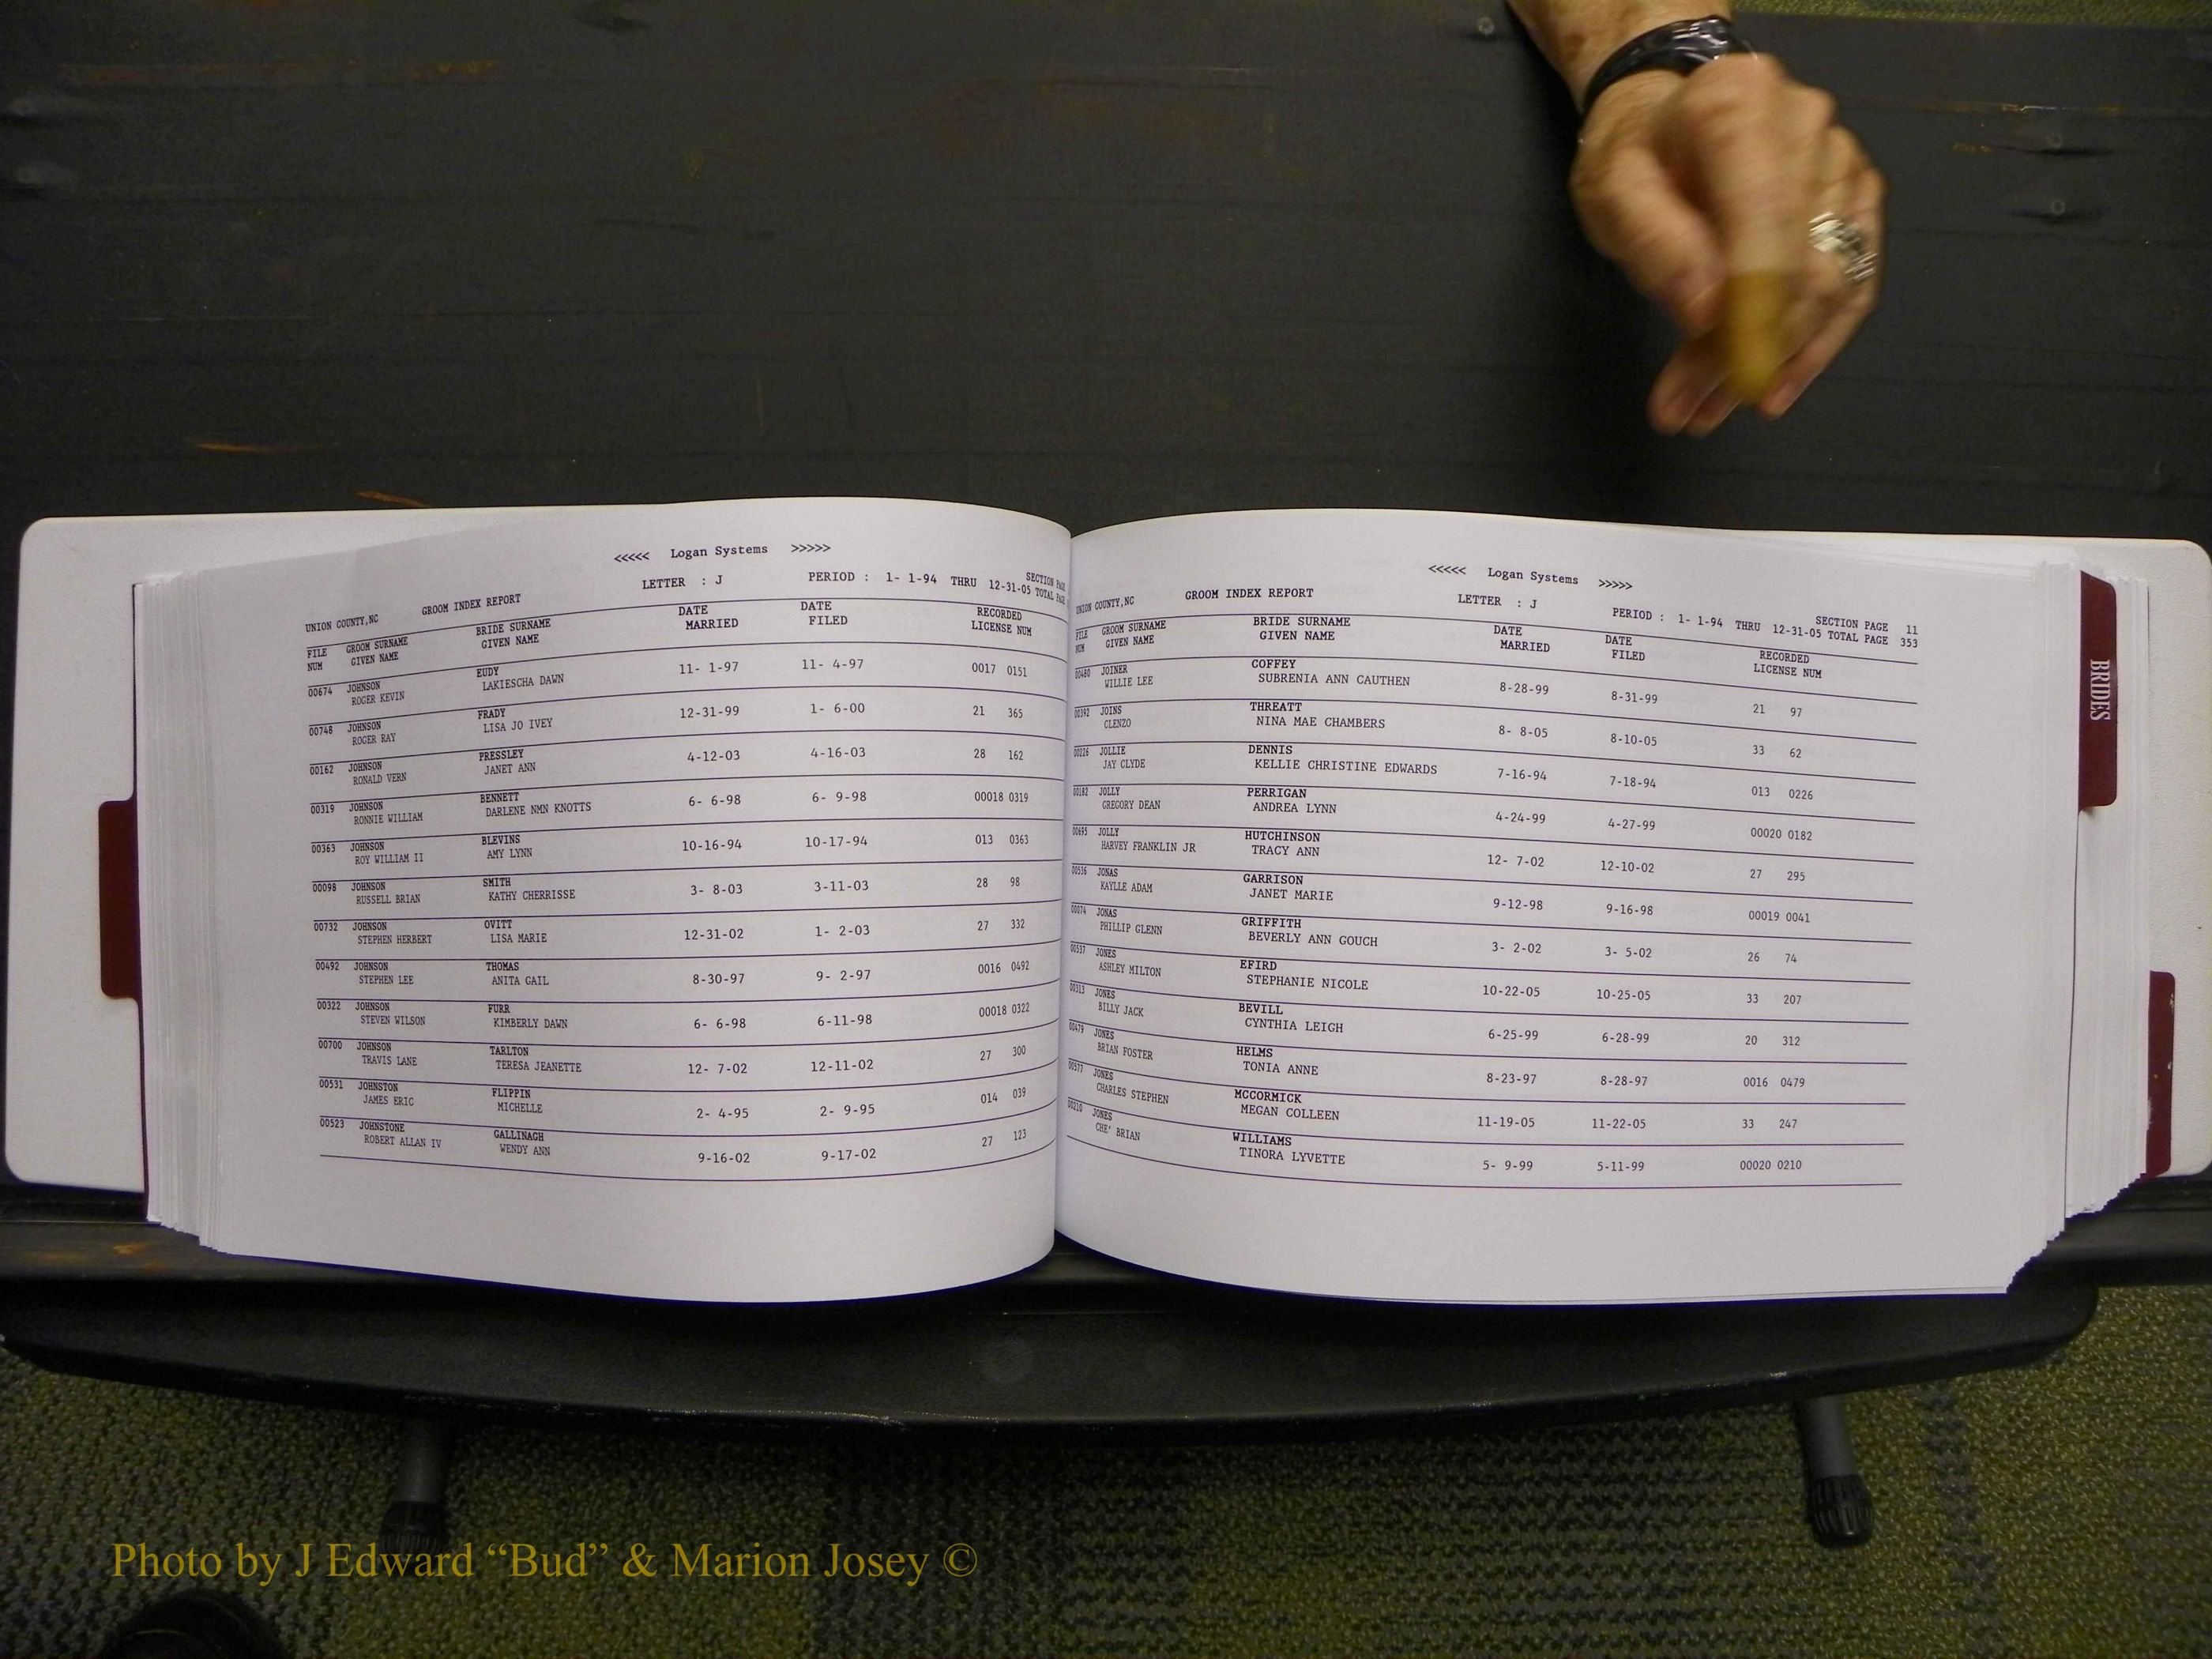 <<<<< Logan Systems >>>>>
UNION COUNTY,NC GROOM INDEX REPORT LETTER : J PERIOD : 1- 1-94 THRU 12-31-05 SECTION
TOTAL
FILE GROOM SURNAME BRIDE SURNAME DATE DATE RECORDED
NUM GIVEN NAME GIVEN NAME MARRIED FILED LICENSE NUM
00674 JOHNSON EUDY 11- 1-97 11- 4-97 0017 0151
ROGER KEVIN LAKIESCHA DAWN
00748 JOHNSON FRADY 12-31-99 1- 6-00 21 365
ROGER RAY LISA JO IVEY
00162 JOHNSON PRESSLEY 4-12-03 4-16-03 28 162
RONALD VERN JANET ANN
00319 JOHNSON BENNETT 6- 6-98 6- 9-98 00018 0319
RONNIE WILLIAM DARLENE NMN KNOTTS
00363 JOHNSON BLEVINS 10-16-94 10-17-94 013 0363
ROY WILLIAM II AMY LYNN
00098 JOHNSON SMITH 3- 8-03 3-11-03 28 98
RUSSELL BRIAN KATHY CHERRISSE
00732 JOHNSON OVITT 12-31-02 1- 2-03 27 332
STEPHEN HERBERT LISA MARIE
00492 JOHNSON THOMAS 8-30-97 9- 2-97 0016 0492
STEPHEN LEE ANITA GAIL
00322 JOHNSON FURR 6- 6-98 6-11-98 00018 0322
STEVEN WILSON KIMBERLY DAWN
00700 JOHNSON TARLTON 12- 7-02 12-11-02 27 300
TRAVIS LANE TERESA JEANETTE
00531 JOHNSTON FLIPPIN 2- 4-95 2- 9-95 014 039
JAMES ERIC MICHELLE
00523 JOHNSTONE GALLINAGH 9-16-02 9-17-02 27 123
ROBERT ALLAN IV WENDY ANN
<<<<< Logan Systems >>>>>
UNION COUNTY,NC GROOM INDEX REPORT LETTER : J PERIOD : 1- 1-94 THRU 12-31-05 SECTION PAGE 11
TOTAL PAGE 353
FILE GROOM SURNAME BRIDE SURNAME DATE DATE RECORDED
NUM GIVEN NAME GIVEN NAME MARRIED FILED LICENSE NUM
00480 JOINER COFFEY 8-28-99 8-31-99 21 97
WILLIE LEE SUBRENIA ANN CAUTHEN
00392 JOINS THREATT 8- 8-05 8-10-05 33 62
CLENZO NINA MAE CHAMBERS
00226 JOLLIE DENNIS 7-16-94 7-18-94 013 0226
JAY CLYDE KELLIE CHRISTINE EDWARDS
00182 JOLLY PERRIGAN 4-24-99 4-27-99 00020 0182
GREGORY DEAN ANDREA LYNN
00695 JOLLY HUTCHINSON 12- 7-02 12-10-02 27 295
HARVEY FRANKLIN JR TRACY ANN
00556 JONAS GARRISON 9-12-98 9-16-98 00019 0041
KAYLLE ADAM JANET MARIE
00074 JONAS GRIFFITH 3- 2-02 3- 5-02 26 74
PHILLIP GLENN BEVERLY ANN GOUCH
00537 JONES EFIRD 10-22-05 10-25-05 33 207
ASHLEY MILTON STEPHANIE NICOLE
00313 JONES BEVILL 6-25-99 6-28-99 20 312
BILLY JACK CYNTHIA LEIGH
00479 JONES HELMS 8-23-97 8-28-97 0016 0479
BRIAN FOSTER TONIA ANNE
00577 JONES MCCORMICK 11-19-05 11-22-05 33 247
CHARLES STEPHEN MEGAN COLLEEN
00210 JONES WILLIAMS 5- 9-99 5-11-99 00020 0210
CHE' BRIAN TINORA LYVETTE
BRIDES
Photo by J Edward “Bud” & Marion Josey ©